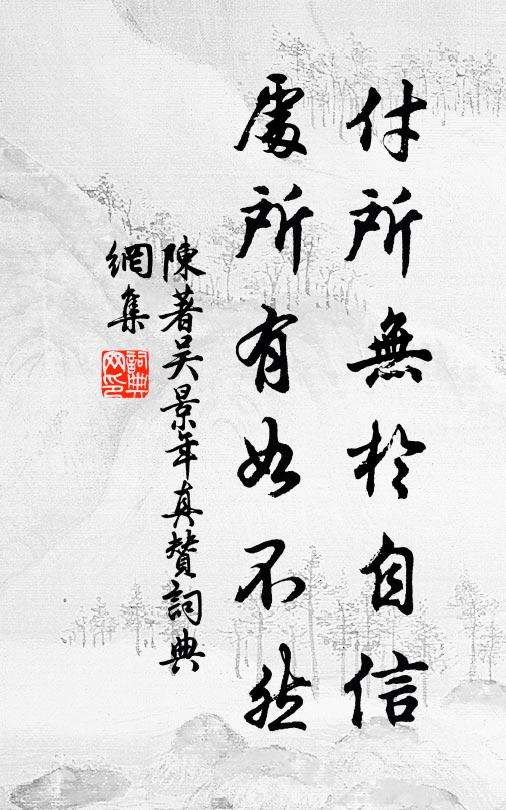 付所無於自信
處所有如不然
陳著吴景年真贊詞典
網集
詞典网印